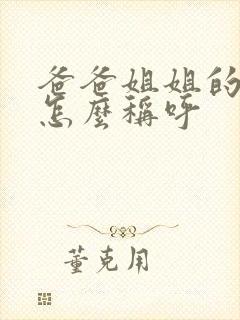 爸爸姐姐的
怎麼稱呼
董克用